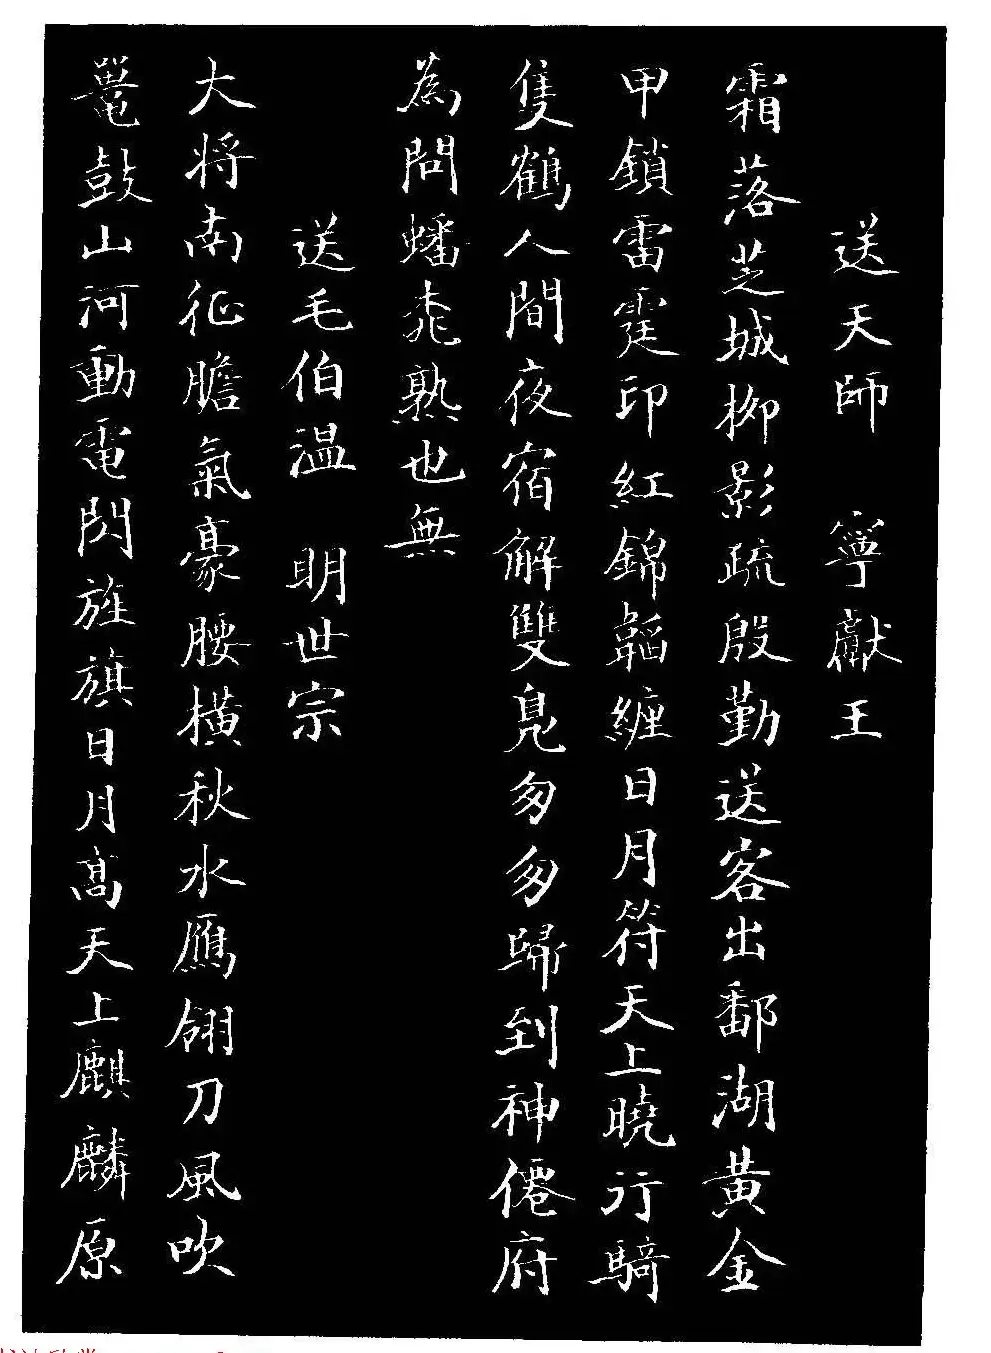 送天師 寧獻王
霜落芝城栁影疏殷勤送客出鄱湖黃金
甲鎖雷霆印紅錦韜纏日月符天上曉行騎
隻鶴人間夜宿解雙鳧匆匆歸到神僊府
為問蟠桃熟也無
送毛伯温 明世宗
大将南征膽氣豪腰橫秋水鴈翎刀風吹
鼉鼓山河動電閃旌旗日月髙天上麒麟原